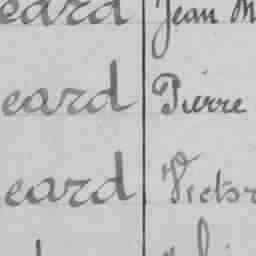 eard Jean M
eard Pierre
eard Victor